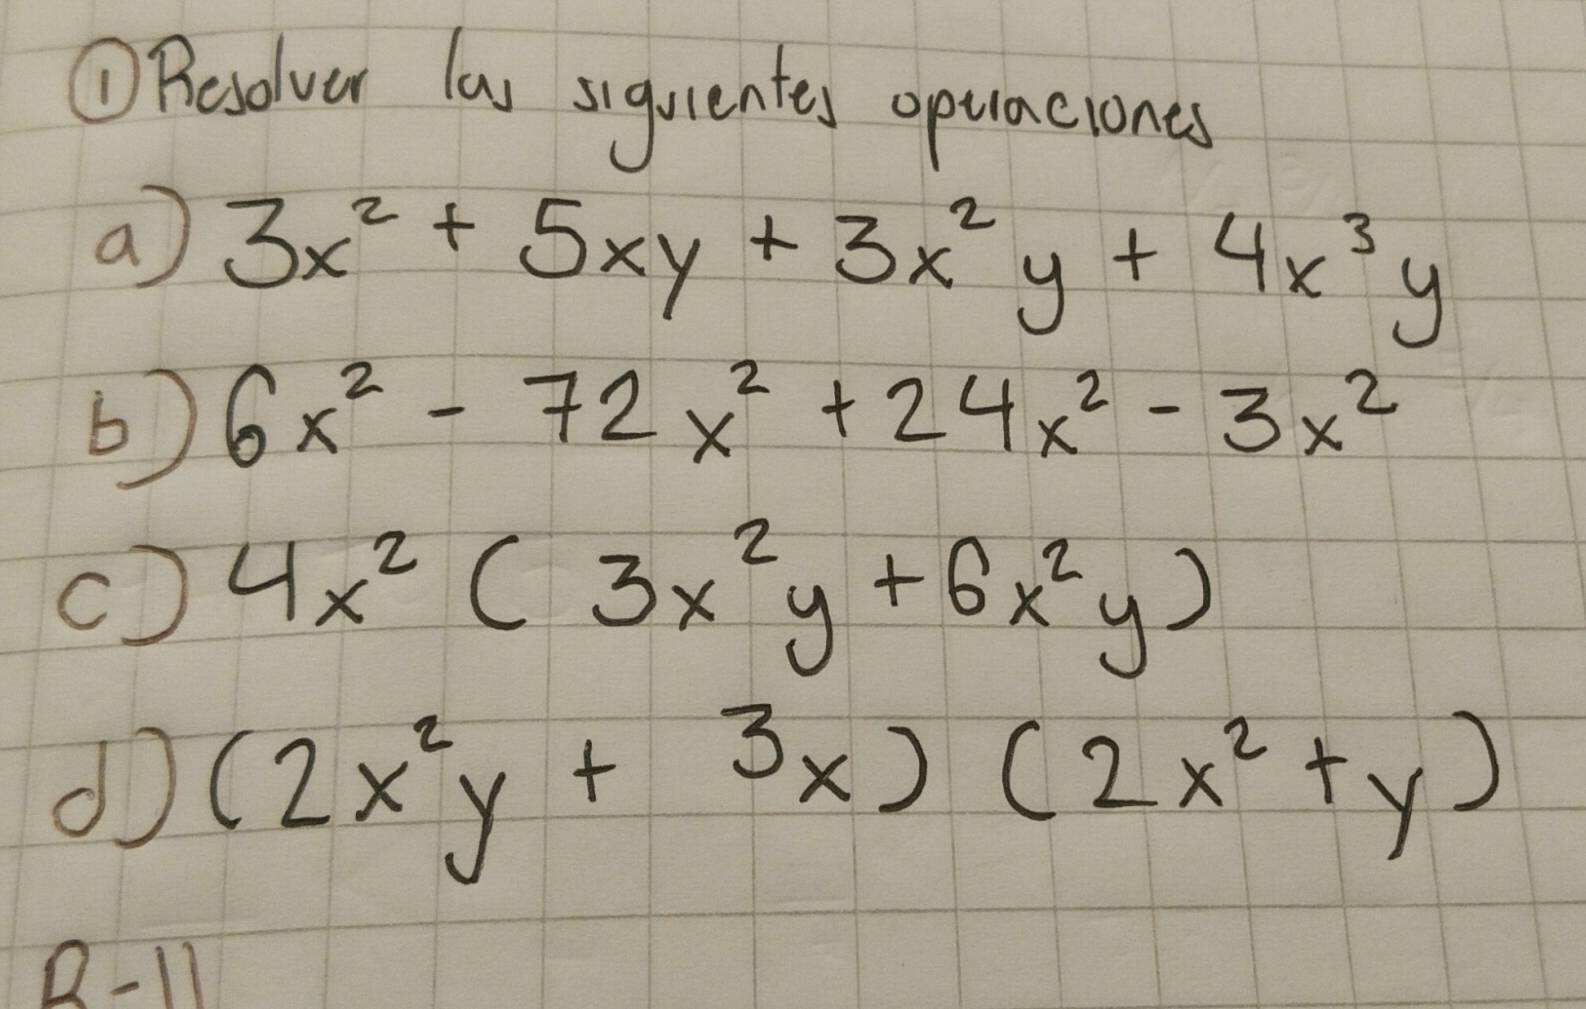 ① Resolver las siguientes operaciones
a) 3x² + 5xy + 3x²y + 4x³y
b) 6x² - 72x² + 24x² - 3x²
c) 4x² ( 3x²y + 6x²y )
d) (2x²y + 3x) (2x² + y)